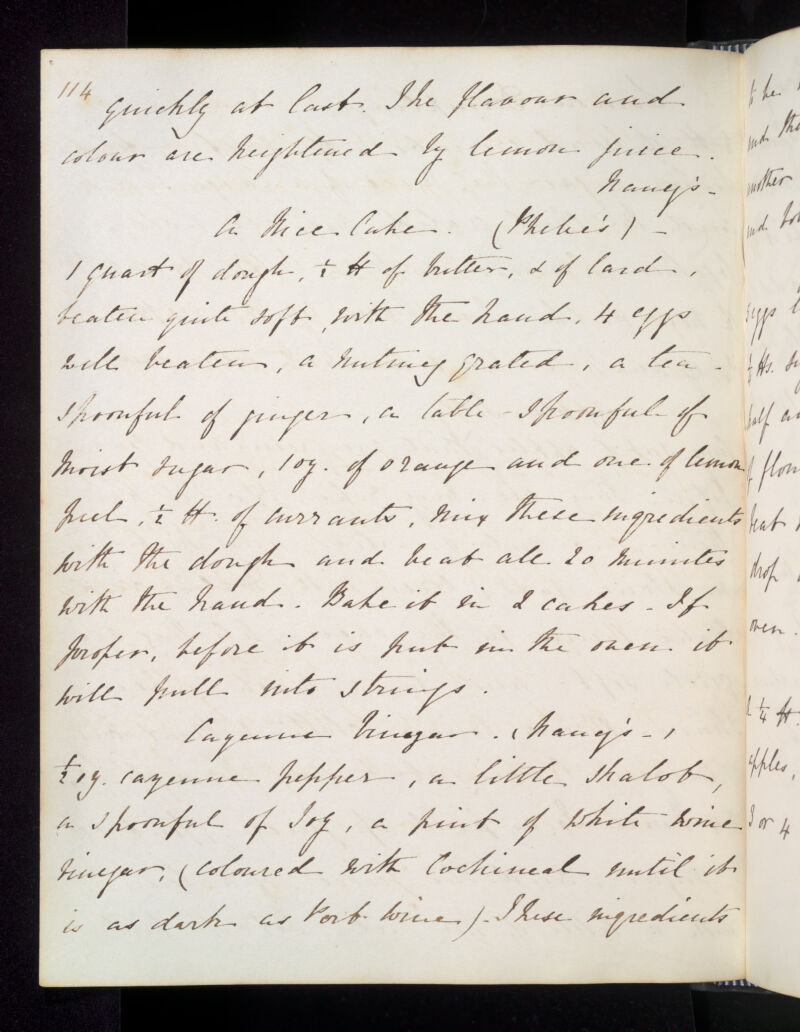 114
quickly at last. The flavour and
colour are heightened by lemon juice.
Nancy's -
A Nice Cake. (Phebe's) -
1 quart of dough, ½ ℔ of butter, & of lard,
beaten quite soft with the hand, 4 eggs
well beaten, a nutmeg grated, a tea-
spoonful of ginger, a table-spoonful of
moist sugar, 1 oz. of orange and one of lemon
peel, ½ ℔. of currants, mix these ingredients
with the dough and beat all 20 minutes
with the hand. Bake it in 2 cakes - If
proper, before it is put in the oven it
will pull into strings.
Cayenne Vinegar. (Nancy's -)
½ oz. cayenne pepper, a little shalot,
a spoonful of Soy, a pint of white wine
vinegar, (coloured with Cochineal until it
is as dark as Port wine). These ingredients
to be
and
another
and
eggs
½ ℔s.
half
of
beat
drop
oven.
¼ ℔.
apples,
3 or 4